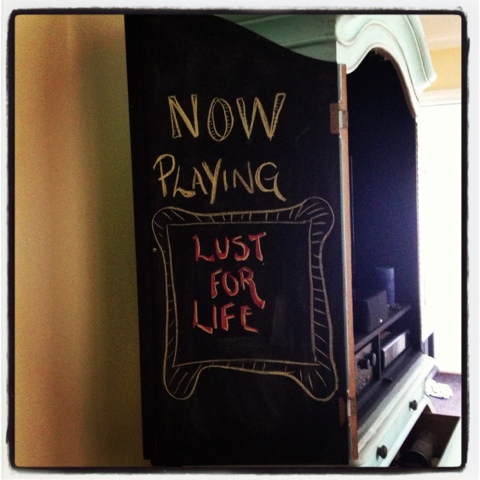 NOW
PLAYING
LUST
FOR
LIFE